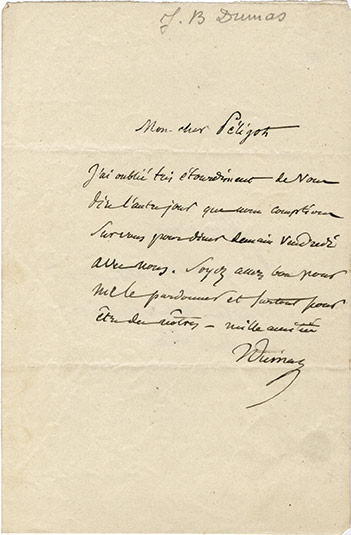 J. B Dumas
Mon cher Péligot
J'ai oublié très étourdiment de vous
dire l'autre jour que nous comptions
sur vous pour diner demain vendredi
avec nous. Soyez assez bon pour
me le pardonner et surtout pour
être des nôtres – mille amitiés
Dumas